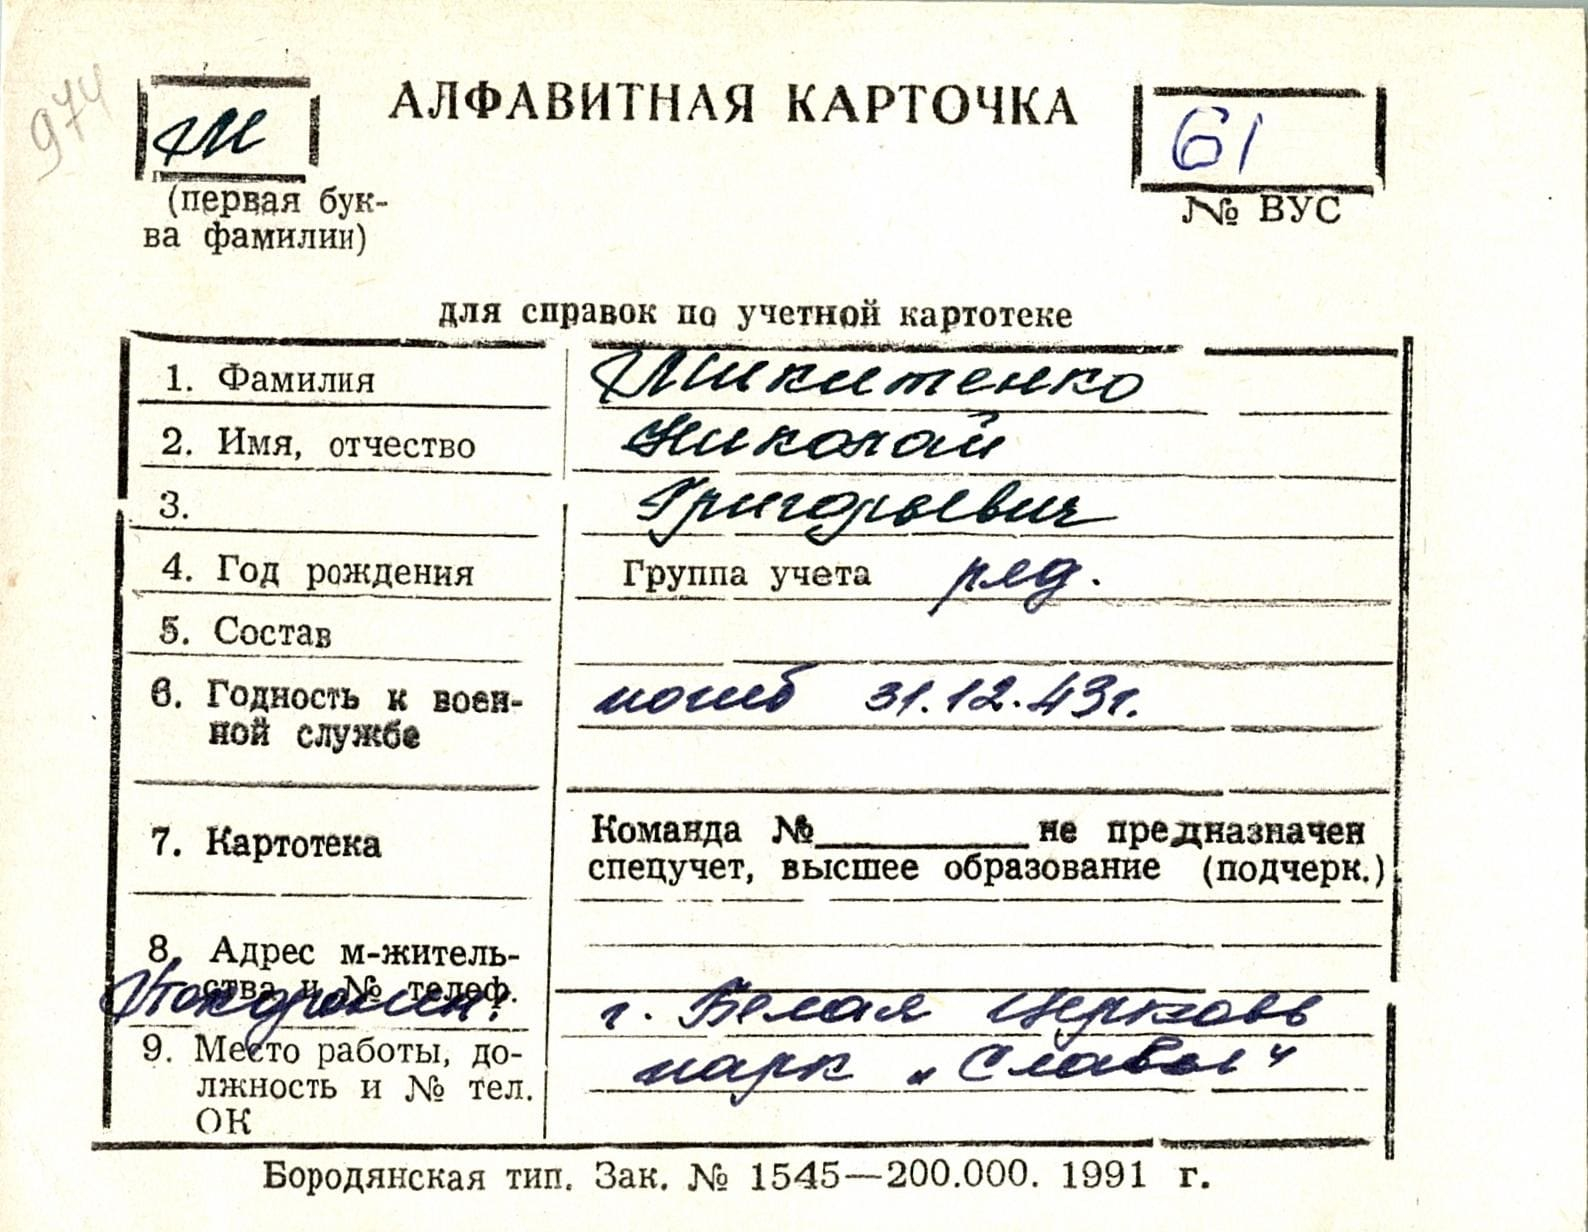 974
М
АЛФАВИТНАЯ КАРТОЧКА
61
(первая бук-
ва фамилии)
№ ВУС
для справок по учетной картотеке
1. Фамилия Микитенко
2. Имя, отчество Николай
3. Григорьевич
4. Год рождения Группа учета ряд.
5. Состав
6. Годность к воен-
ной службе погиб 31.12.43г.
7. Картотека Команда №________ не предназначен
спецучет, высшее образование (подчерк.)
8. Адрес м-житель-
ства и № телеф.
г. Белая Церковь
9. Место работы, до-
лжность и № тел.
ОК
парк „Славы"
Бородянская тип. Зак. № 1545—200.000. 1991 г.